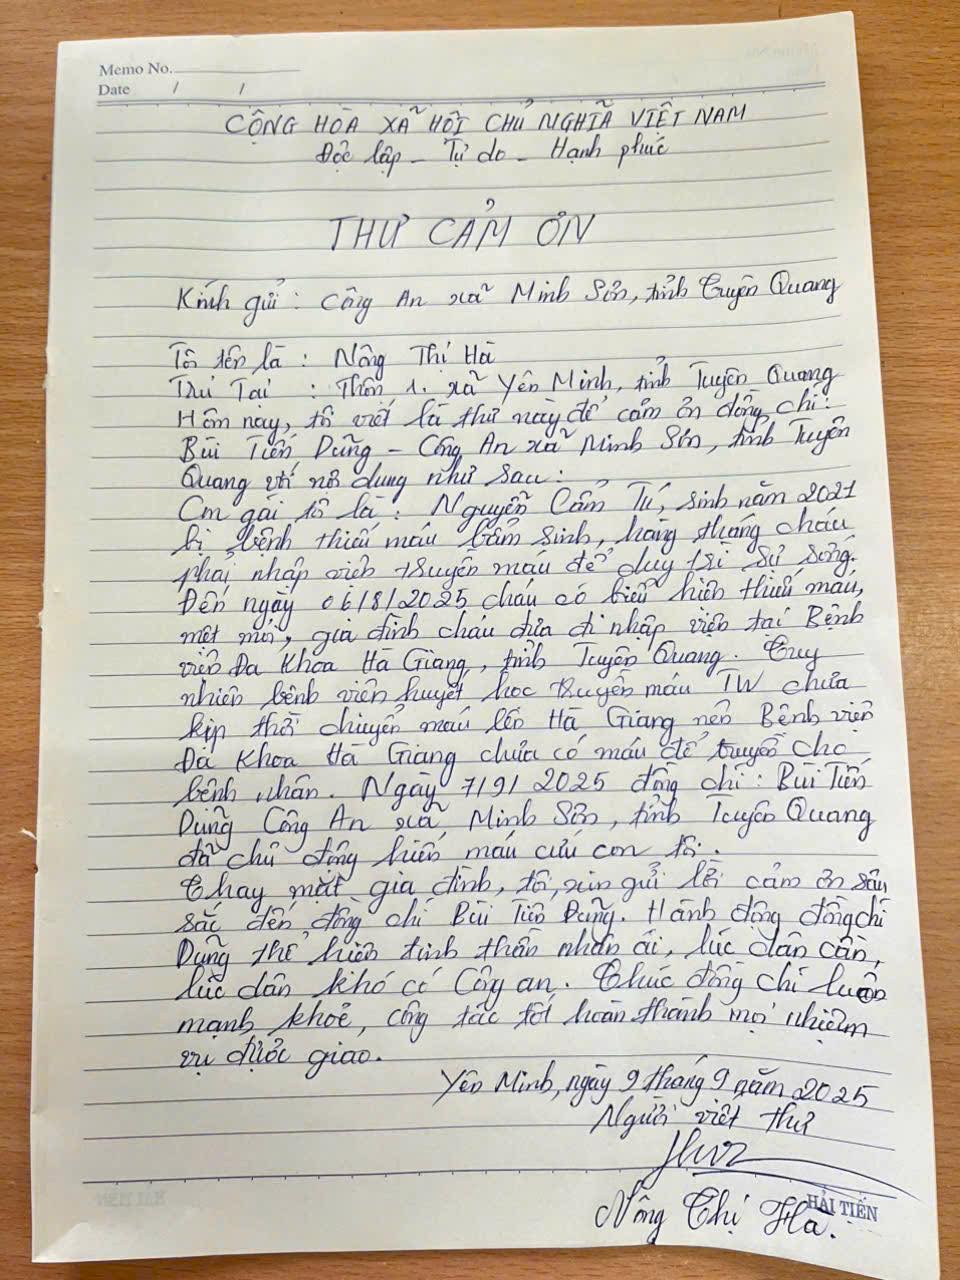 Memo No.
Date / /
CỘNG HÒA XÃ HỘI CHỦ NGHĨA VIỆT NAM
Độc lập - Tự do - Hạnh phúc
THƯ CẢM ƠN
Kính gửi : Công An xã Minh Sơn, tỉnh Tuyên Quang
Tôi tên là : Nông Thị Hà
Trú Tại : Thôn 1. xã Yên Minh, tỉnh Tuyên Quang
Hôm nay, tôi viết lá thư này để cảm ơn đồng chí:
Bùi Tiến Dũng - Công An xã Minh Sơn, tỉnh Tuyên
Quang với nội dung như sau :
Con gái tôi là : Nguyễn Cẩm Tú, sinh năm 2021
bị bệnh thiếu máu bẩm sinh, hàng tháng cháu
phải nhập viện truyền máu để duy trì sự sống.
Đến ngày 06/8/2025 cháu có biểu hiện thiếu máu,
mệt mỏi, gia đình cháu đưa đi nhập viện tại Bệnh
viện Đa Khoa Hà Giang, tỉnh Tuyên Quang. Tuy
nhiên bệnh viện huyết học truyền máu TW chưa
kịp thời chuyển máu lên Hà Giang nên Bệnh viện
Đa Khoa Hà Giang chưa có máu để truyền cho
bệnh nhân. Ngày 7/9/2025 đồng chí : Bùi Tiến
Dũng Công An xã Minh Sơn, tỉnh Tuyên Quang
đã chủ động hiến máu cứu con tôi.
Thay mặt gia đình, tôi xin gửi lời cảm ơn sâu
sắc đến đồng chí Bùi Tiến Dũng. Hành động đồng chí
Dũng thể hiện tinh thần nhân ái, lúc dân cần,
lúc dân khó có Công an. Chúc đồng chí luôn
mạnh khoẻ, công tác tốt hoàn thành mọi nhiệm
vụ được giao.
Yên Minh, ngày 9 tháng 9 năm 2025
Người viết thư
Nông Thị Hà.
HẢI TIẾN